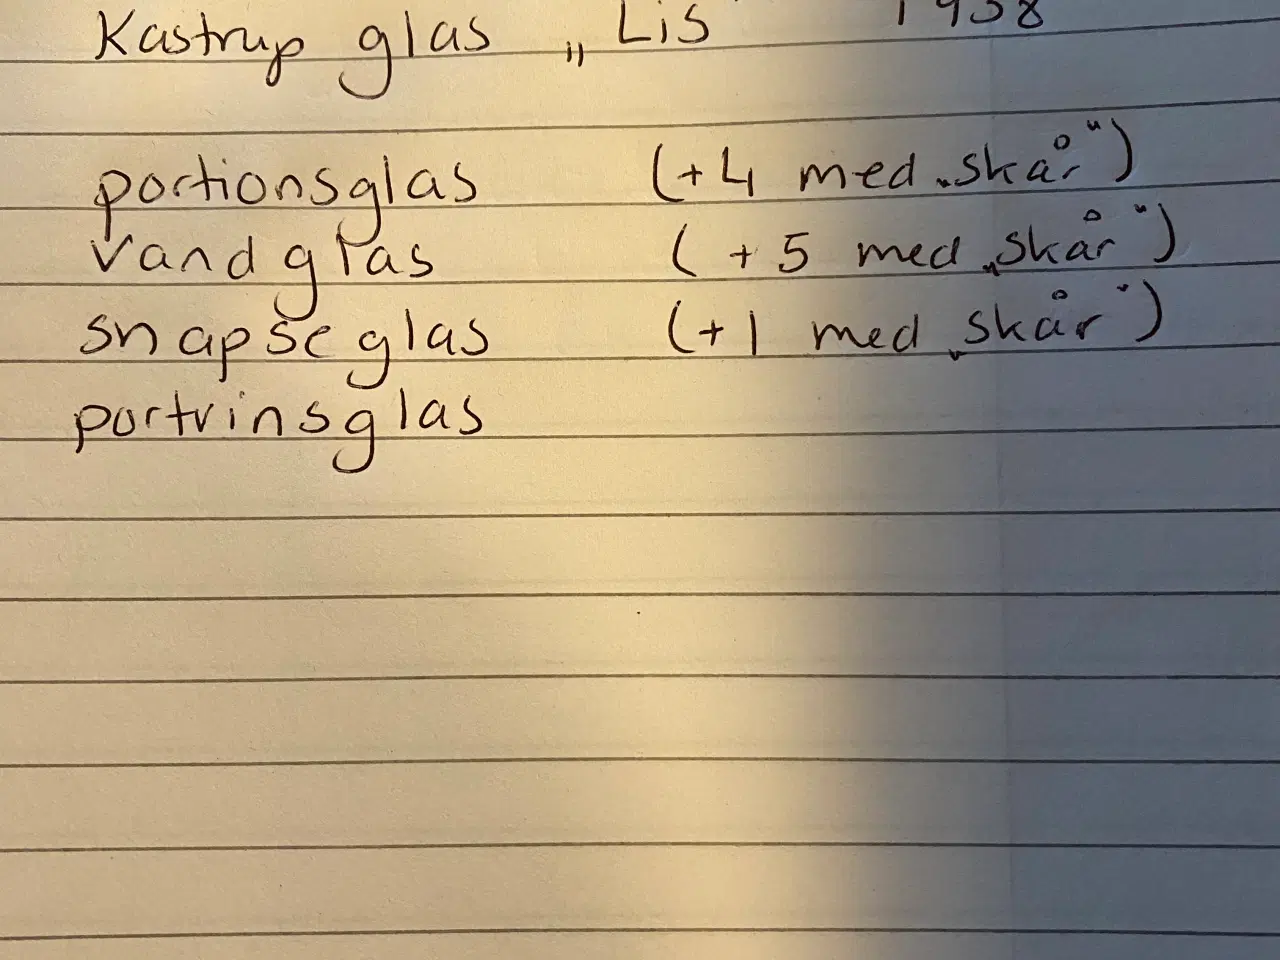 Kastrup glas „Lis 1958
portionsglas (+4 med „skår")
vandglas (+5 med „skår")
snapseglas (+1 med „skår")
portvinsglas